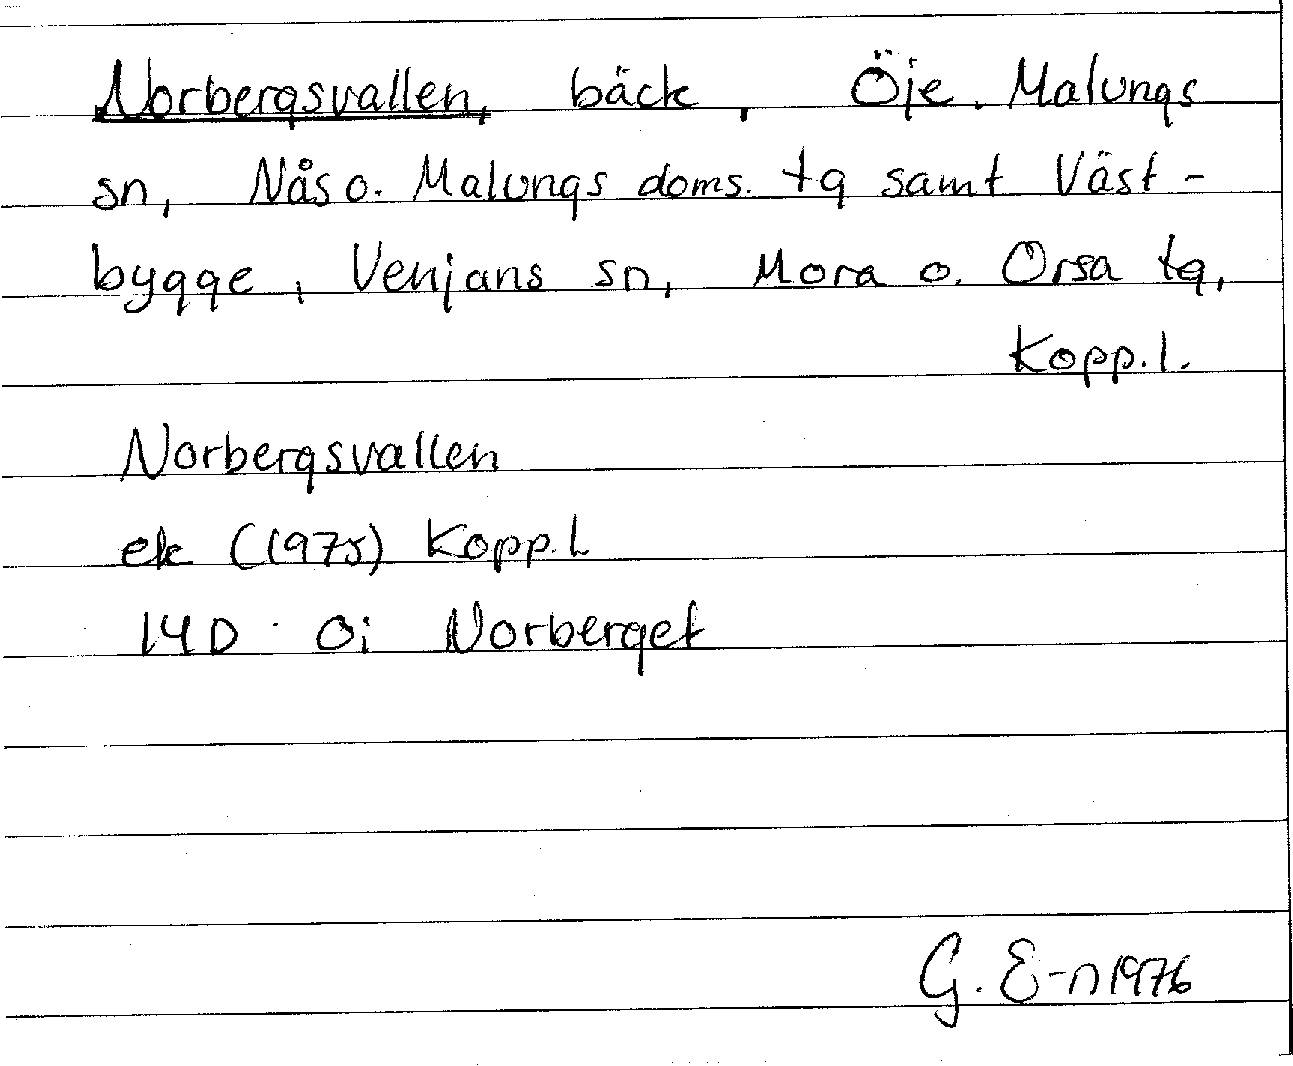 Norbergsvallen, bäck, Öje. Malungs
sn, Nås o. Malungs doms. tg samt Väst-
bygge, Venjans sn, Mora o. Orsa tg,
Kopp.l.
Norbergsvallen
ek (1975) Kopp.l
14D 0i Norberget
G. E-n 1976